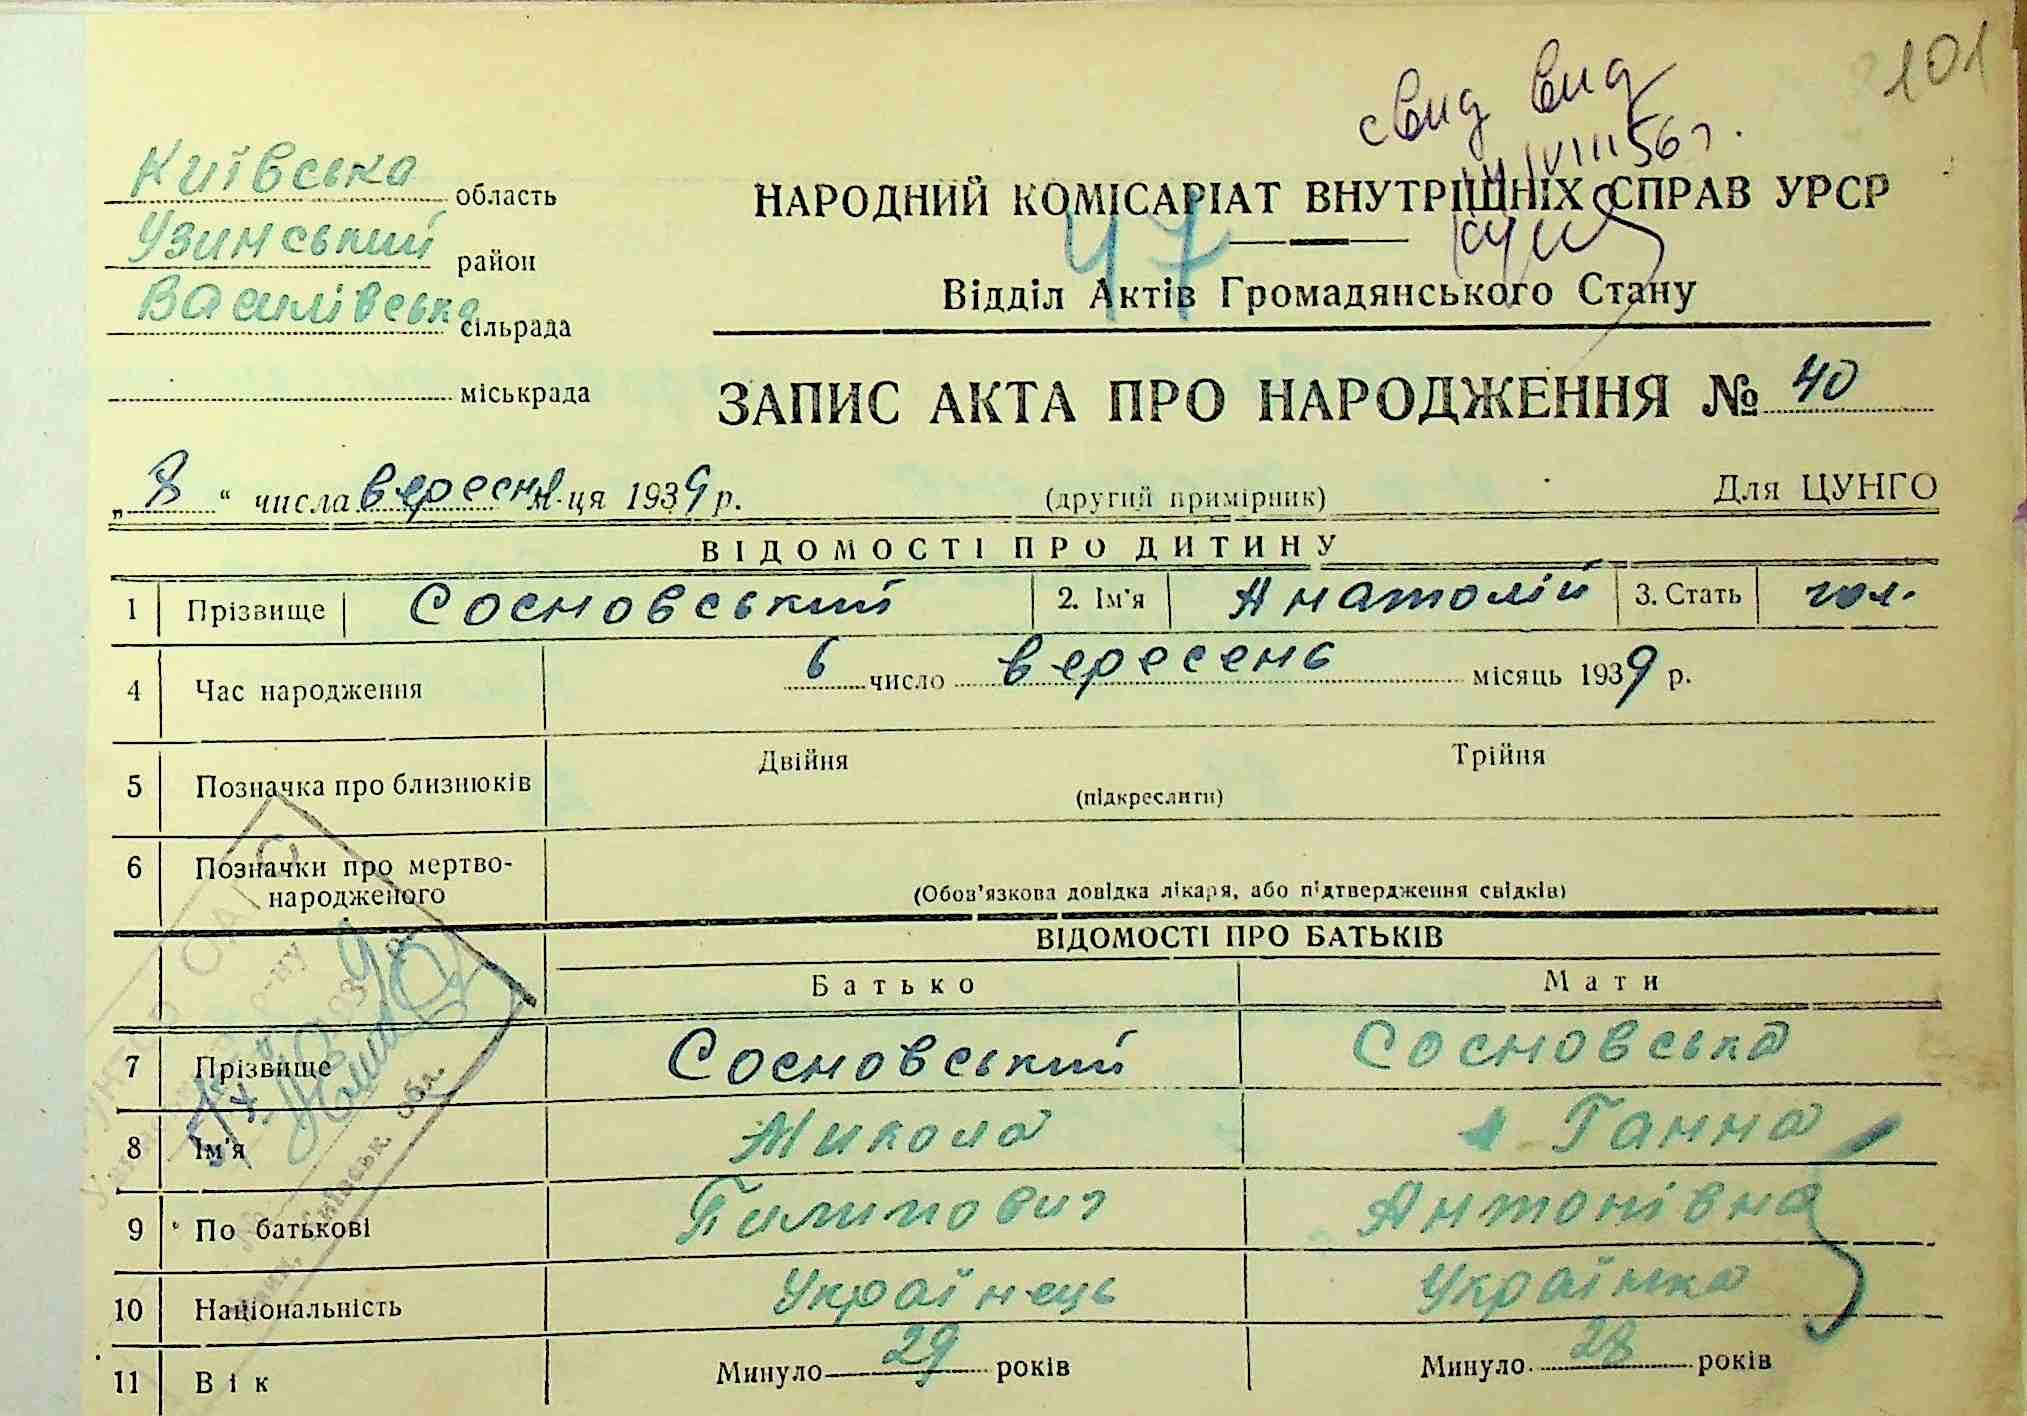 101
свид вид
VIII 56 г.
Київська область
Узинський район
Василівська сільрада
міськрада
НАРОДНИЙ КОМІСАРІАТ ВНУТРІШНІХ СПРАВ УРСР
47
Відділ Актів Громадянського Стану
ЗАПИС АКТА ПРО НАРОДЖЕННЯ № 40
„8“ числа вересня м-ця 1939 р. (другий примірник) Для ЦУНГО
ВІДОМОСТІ ПРО ДИТИНУ
1 Прізвище Сосновський 2. Ім'я Анатолій 3. Стать чол.
4 Час народження 6 число вересень місяць 1939 р.
5 Позначка про близнюків Двійня Трійня
(підкреслити)
6 Позначки про мертво-
народженого (Обов'язкова довідка лікаря, або підтвердження свідків)
ВІДОМОСТІ ПРО БАТЬКІВ
Батько Мати
7 Прізвище Сосновський Сосновська
8 Ім'я Микола Ганна
9 По батькові Пилипович Антонівна
10 Національність Українець Українка
11 Вік Минуло 29 років Минуло 28 років
обл.